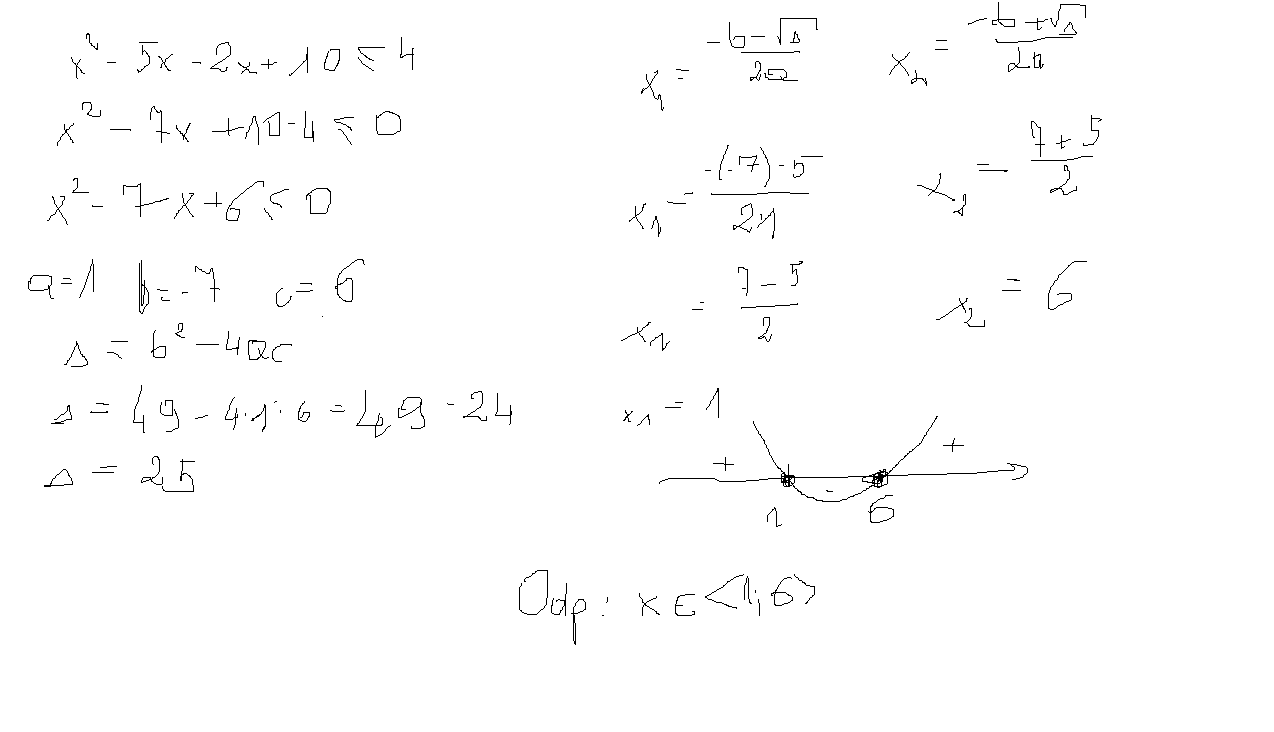 x² - 5x - 2x + 10 ≤ 4
x² - 7x + 10 - 4 ≤ 0
x² - 7x + 6 ≤ 0
a = 1 b = -7 c = 6
Δ = b² - 4ac
Δ = 49 - 4·1·6 = 49 - 24
Δ = 25
x₁ = (-b - √Δ)/2a
x₁ = (-(-7) - 5)/2·1
x₁ = (7 - 5)/2
x₁ = 1
x₂ = (-b + √Δ)/2a
x₂ = (7 + 5)/2
x₂ = 6
+ - +
1 6
Odp: x ∈ <1; 6>